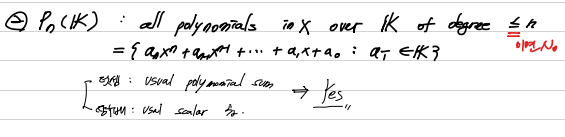 ② Pₙ(𝕂) : all polynomials in X over 𝕂 of degree ≤ n
이면 Yes.
= { aₙxⁿ + aₙ₋₁xⁿ⁻¹ + ⋯ + a₁x + a₀ : aᵢ ∈ 𝕂 }
덧셈 : usual polynomial sum ⇒ Yes
usual scalar